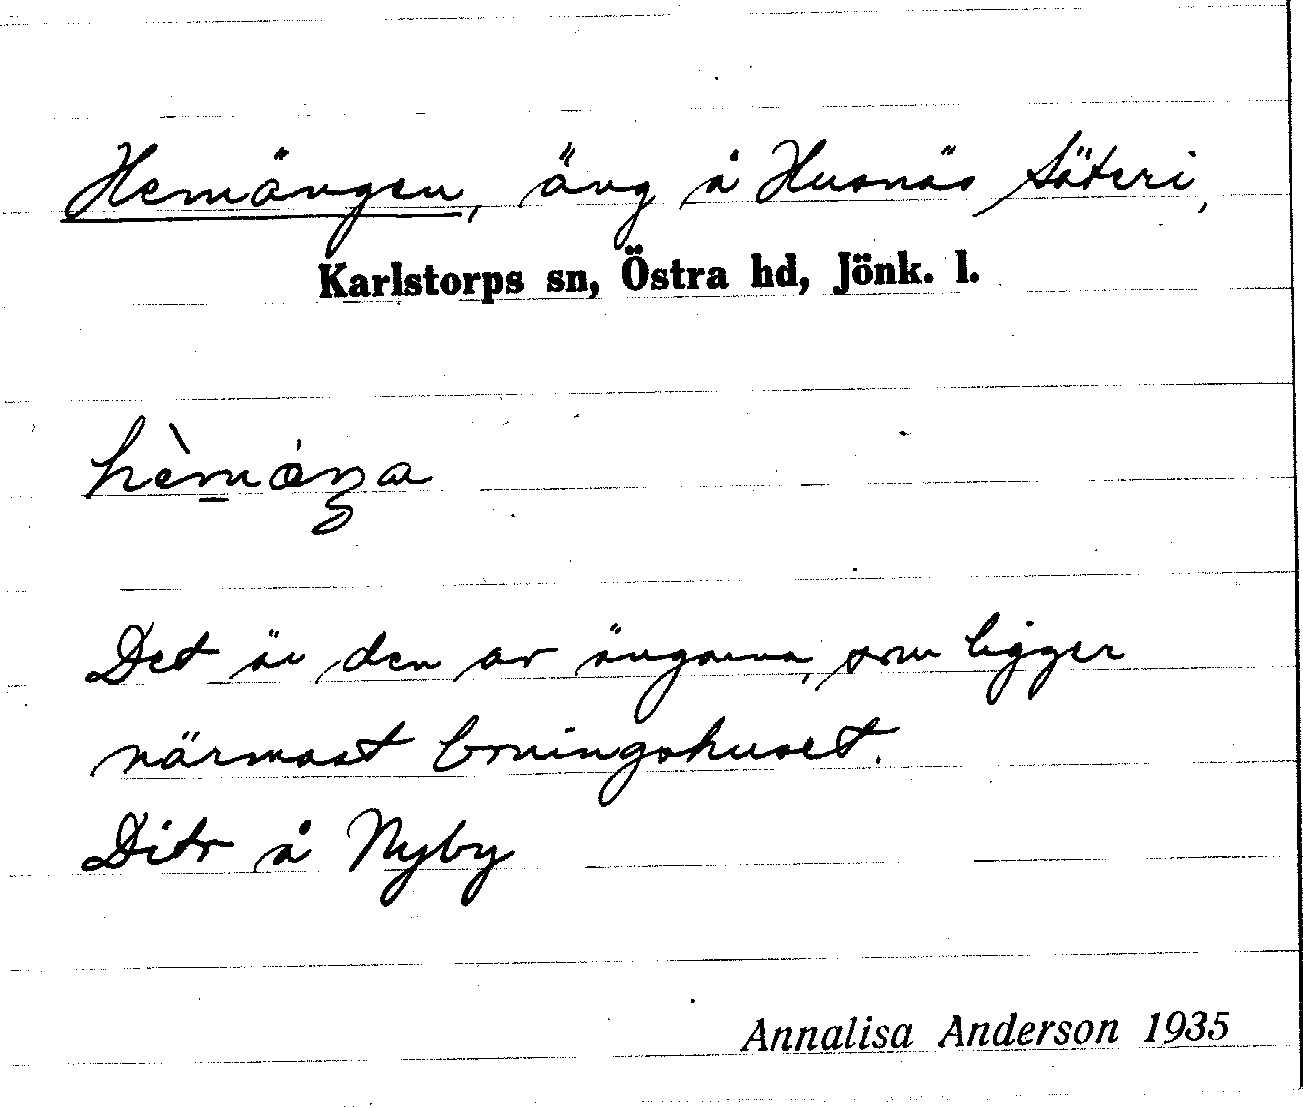 Hemängen, äng å Husnäs Säteri,
Karlstorps sn, Östra hd, Jönk. l.
hèmæ̀ŋa
Det är den av ängarna, som ligger
närmast boningshuset.
Dito å Nyby
Annalisa Anderson 1935